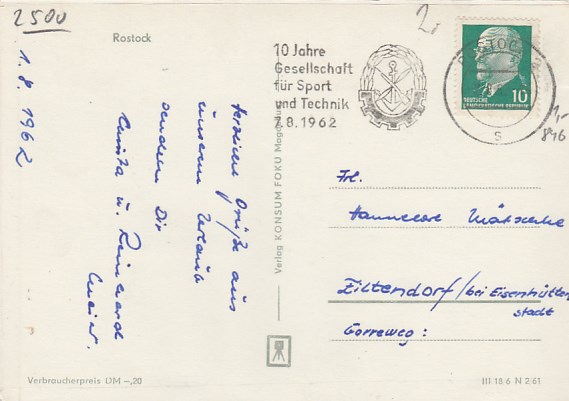 2500
2.
Rostock
1.8.1962
Herzliche Grüße aus
unserem Urlaub
senden Dir
u. Reinhard
10 Jahre
Gesellschaft
für Sport
und Technik
7.8.1962
ROSTOCK
S
10
DEUTSCHE
DEMOKRATISCHE REPUBLIK
1,-
846
Frl.
Hannelore
Ziltendorf/bei Eisenhütten
stadt
Verlag KONSUM FOKU Magdeburg
Verbraucherpreis DM –,20
III 18 6 N 2 61